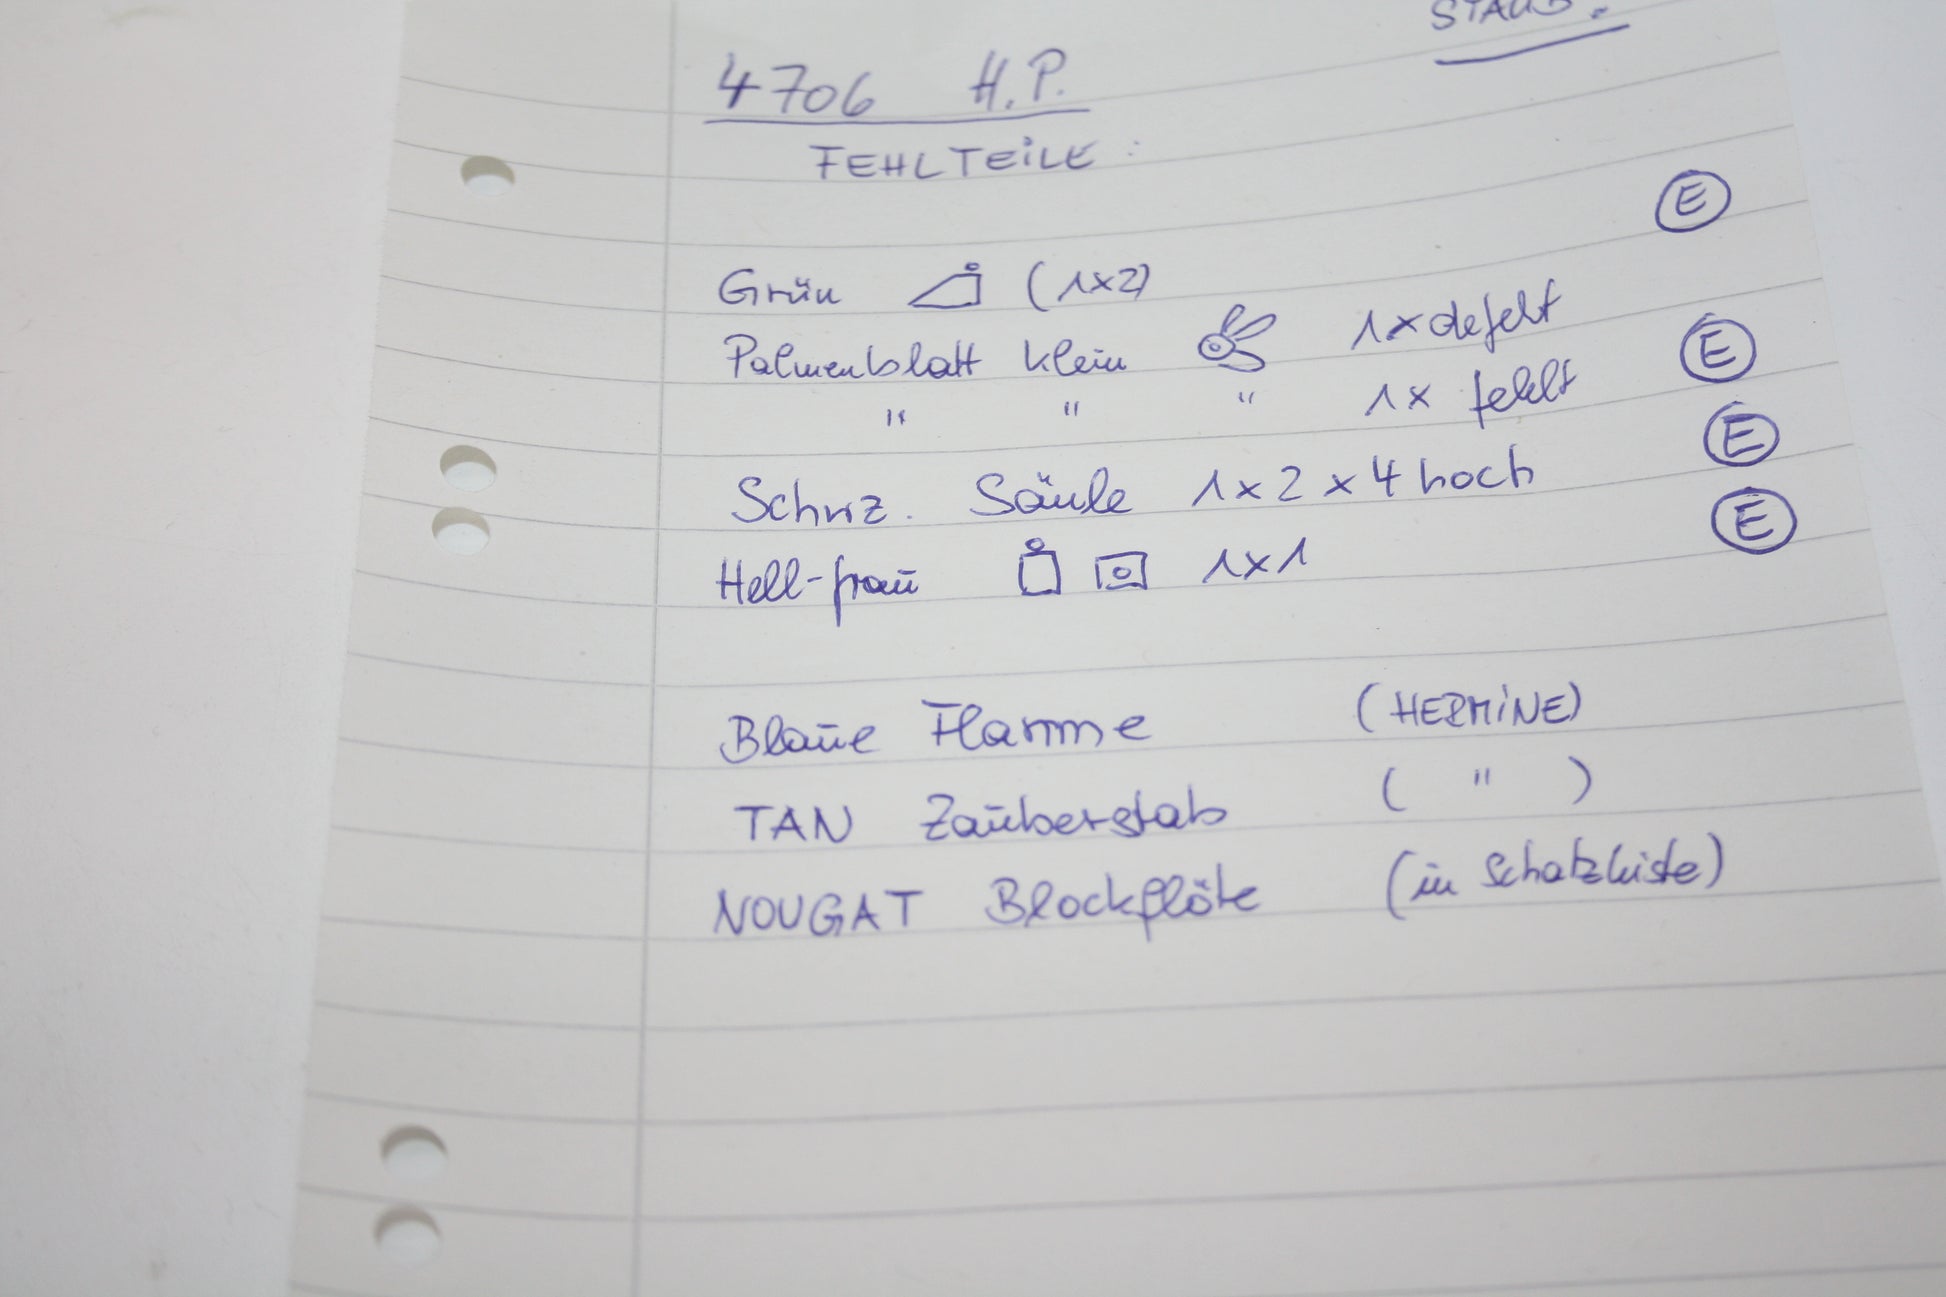 STAUB.
4706 H.P.
FEHLTEILE :
E
Grün (1x2)
Palmenblatt klein 1x defekt E
" " " 1x fehlt E
Schwz. Säule 1x2x4 hoch E
Hell-grau 1x1
Blaue Flamme (HERMiNE)
TAN Zauberstab ( " )
NOUGAT Blockflöte (in Schatzkiste)